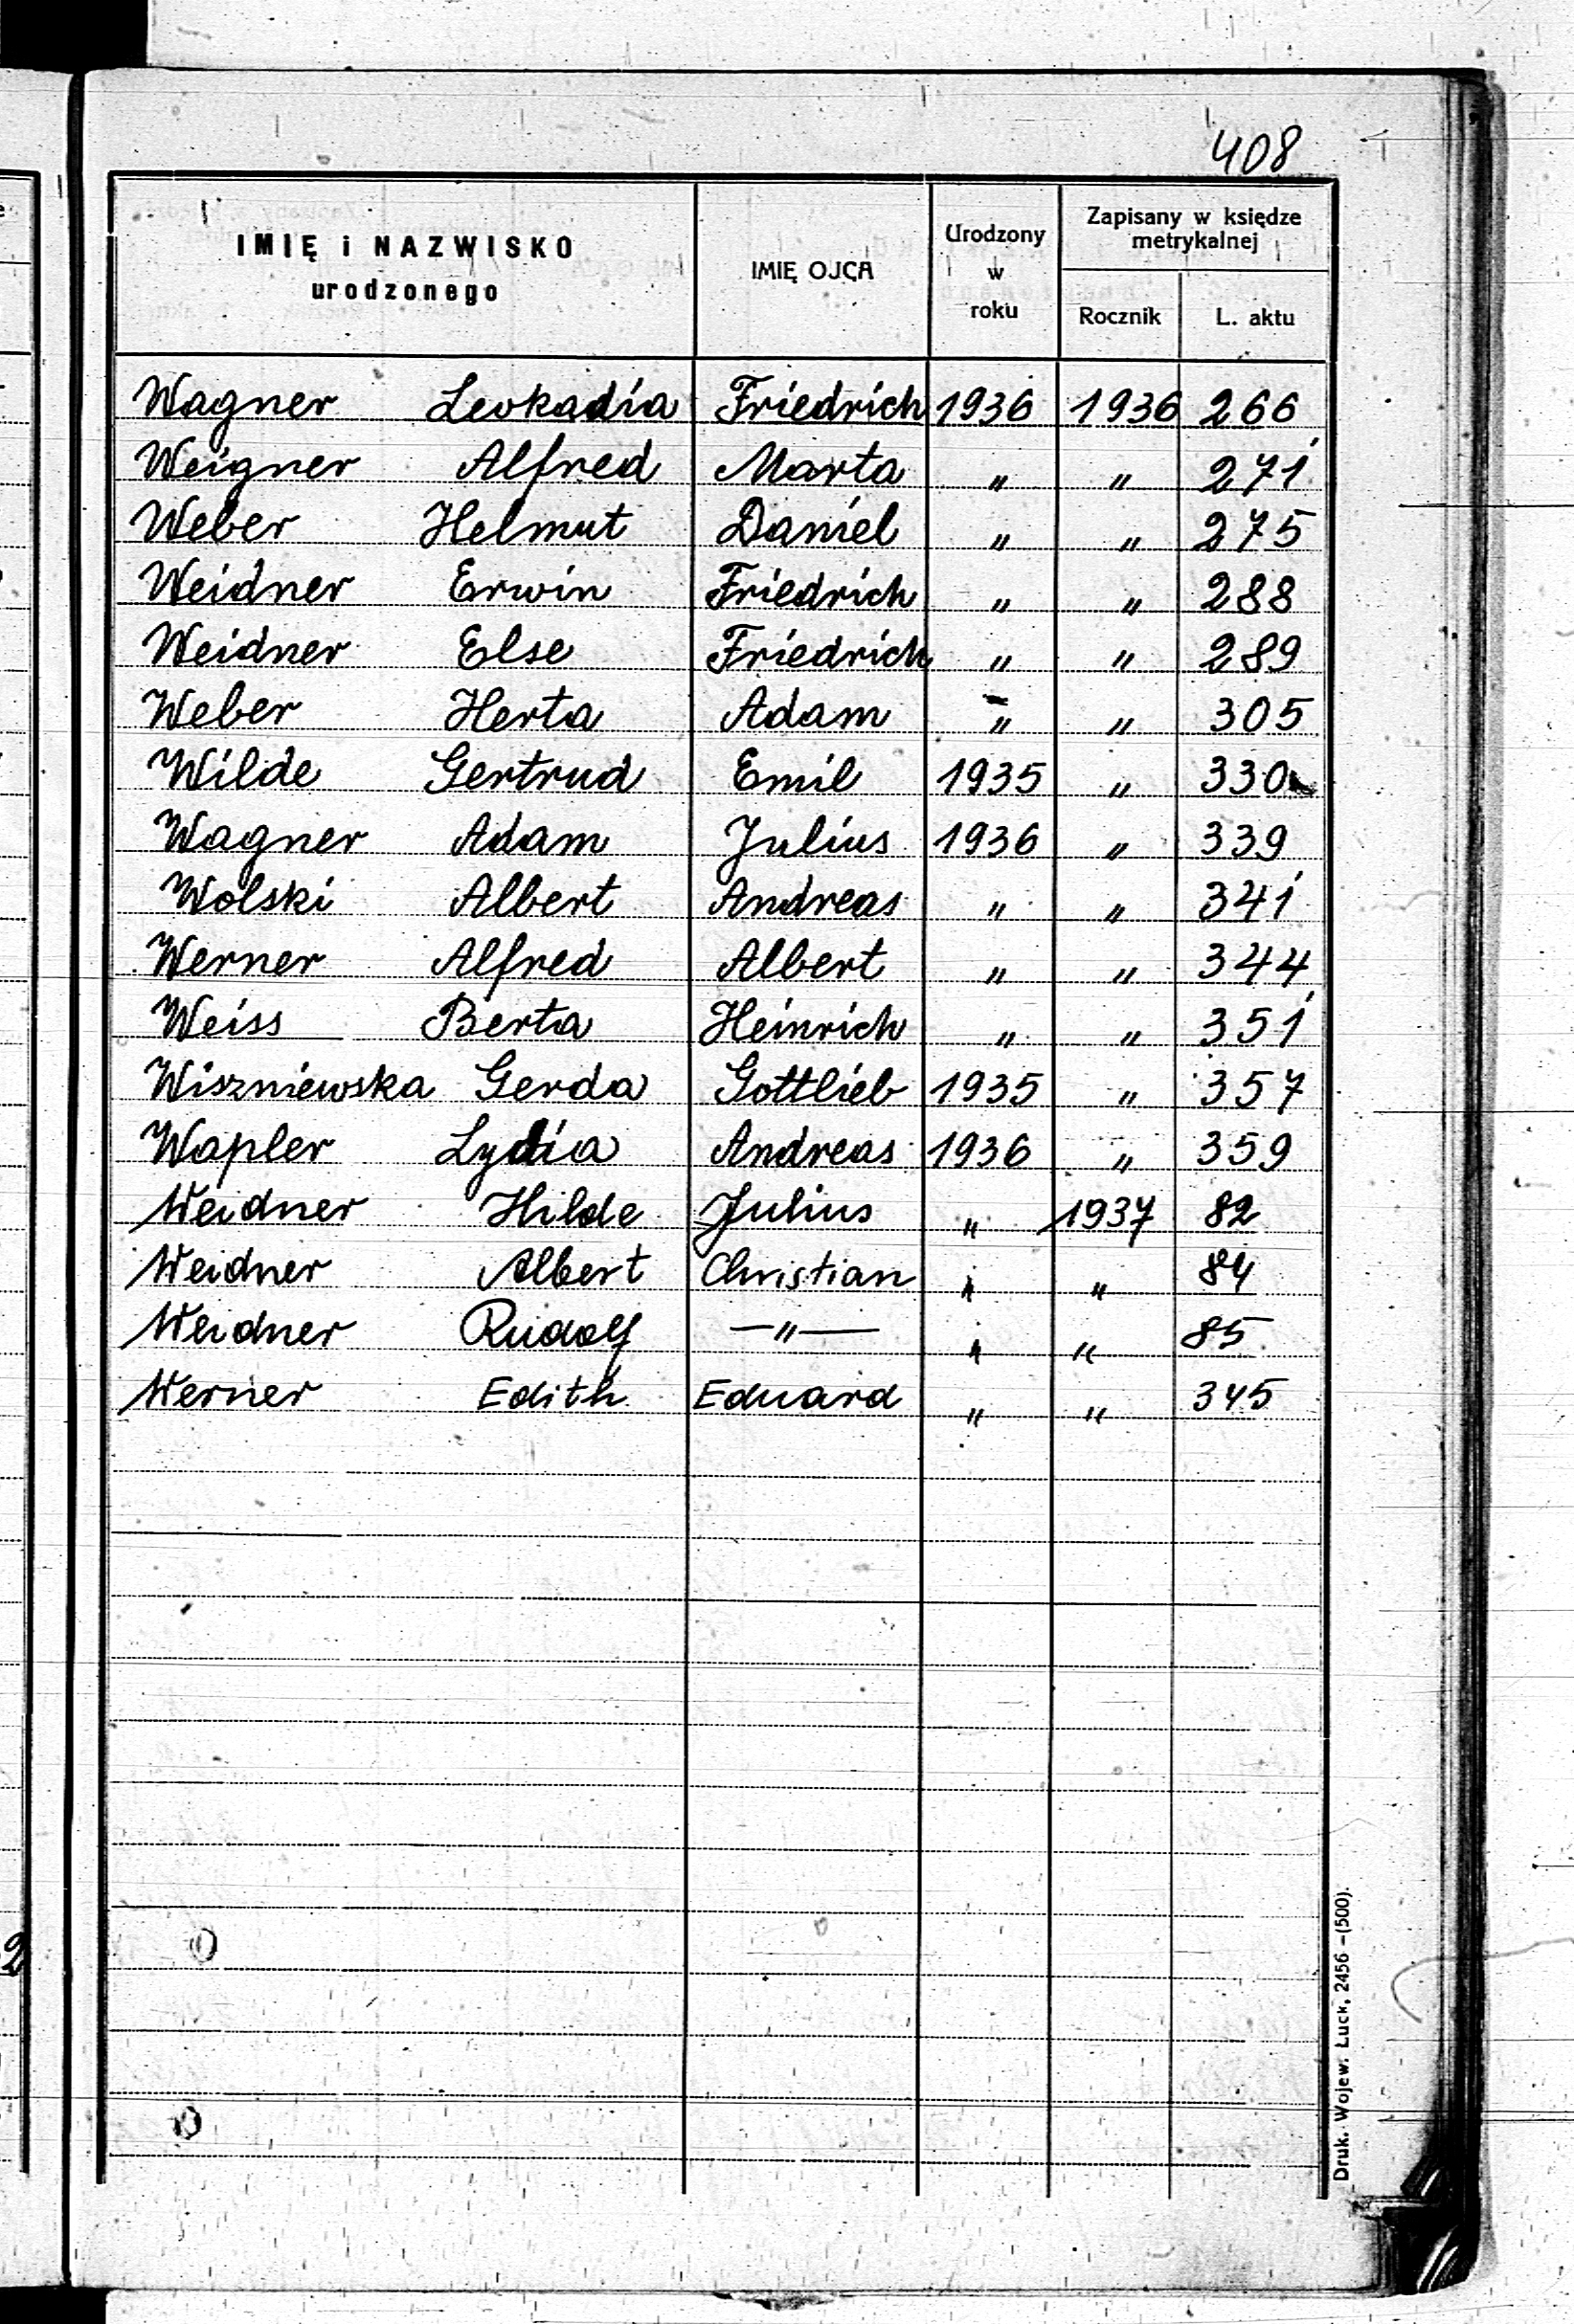 408
IMIĘ i NAZWISKO urodzonego | IMIĘ OJCA | Urodzony w roku | Zapisany w księdze metrykalnej
Rocznik | L. aktu
Wagner Leokadia Friedrich 1936 1936 266
Weigner Alfred Marta " " 271
Weber Helmut Daniel " " 275
Weidner Erwin Friedrich " " 288
Weidner Else Friedrich " " 289
Weber Herta Adam " " 305
Wilde Gertrud Emil 1935 " 330
Wagner Adam Julius 1936 " 339
Wolski Albert Andreas " " 341
Werner Alfred Albert " " 344
Weiss Berta Heinrich " " 351
Wiszniewska Gerda Gottlieb 1935 " 357
Wapler Lydia Andreas 1936 " 359
Weidner Hilde Julius " 1937 82
Weidner Albert Christian " " 84
Weidner Rudolf —"— " " 85
Werner Edith Eduard " " 345
Druk. Wojew. Łuck, 2456 –(500).
2